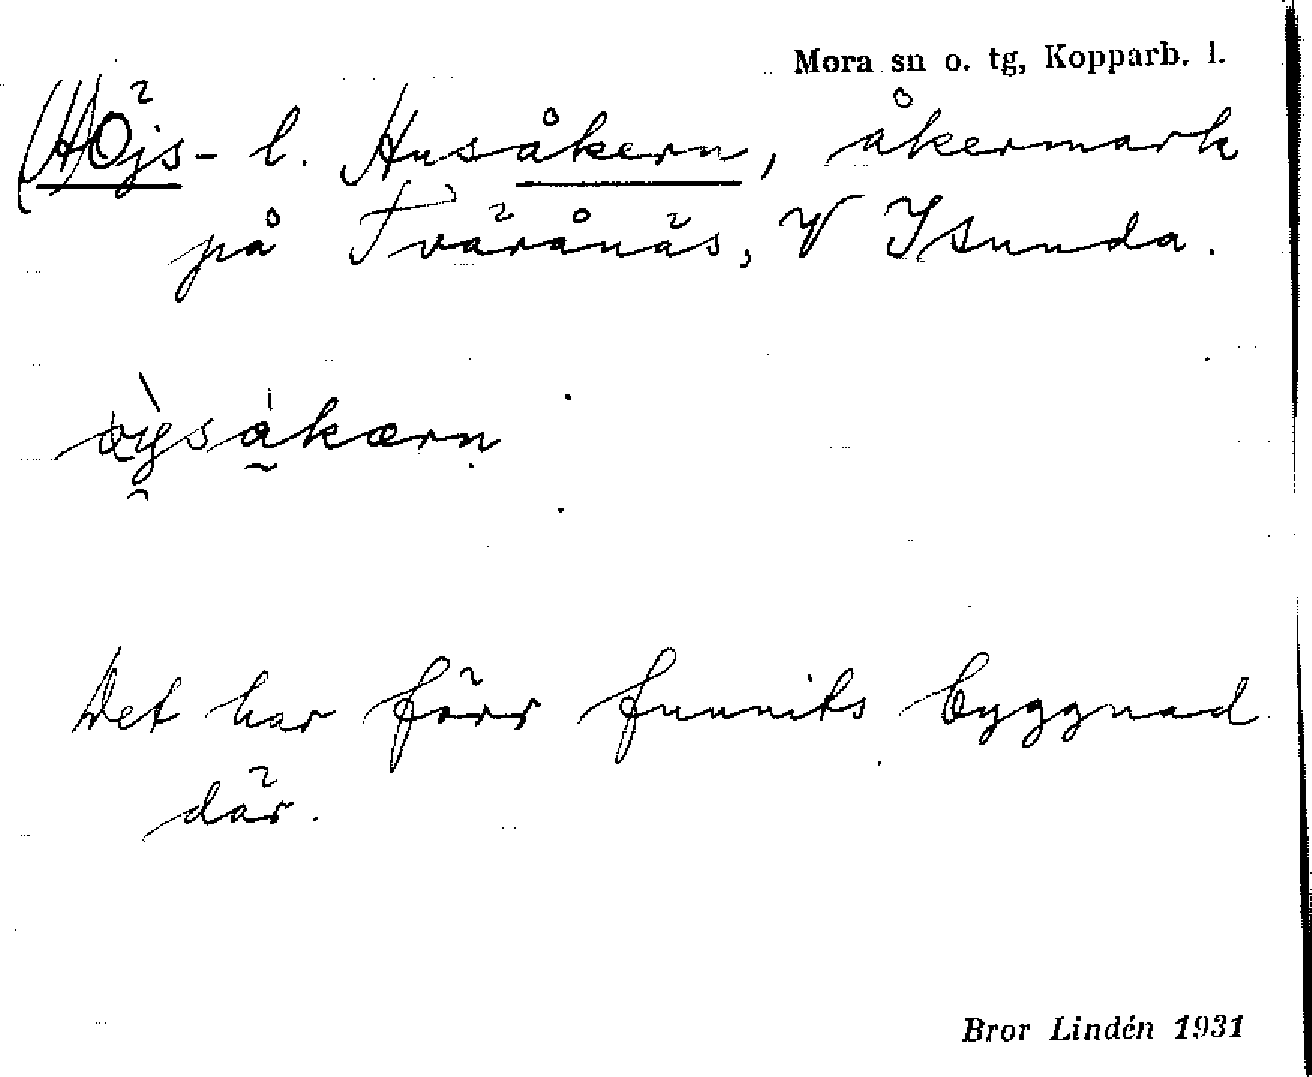 Mora sn o. tg, Kopparb. l.
(H)Öjs- l. Husåkern, åkermark
på Tväränäs, V Isunda.
Det har förr funnits byggnad
där.
Bror Lindén 1931